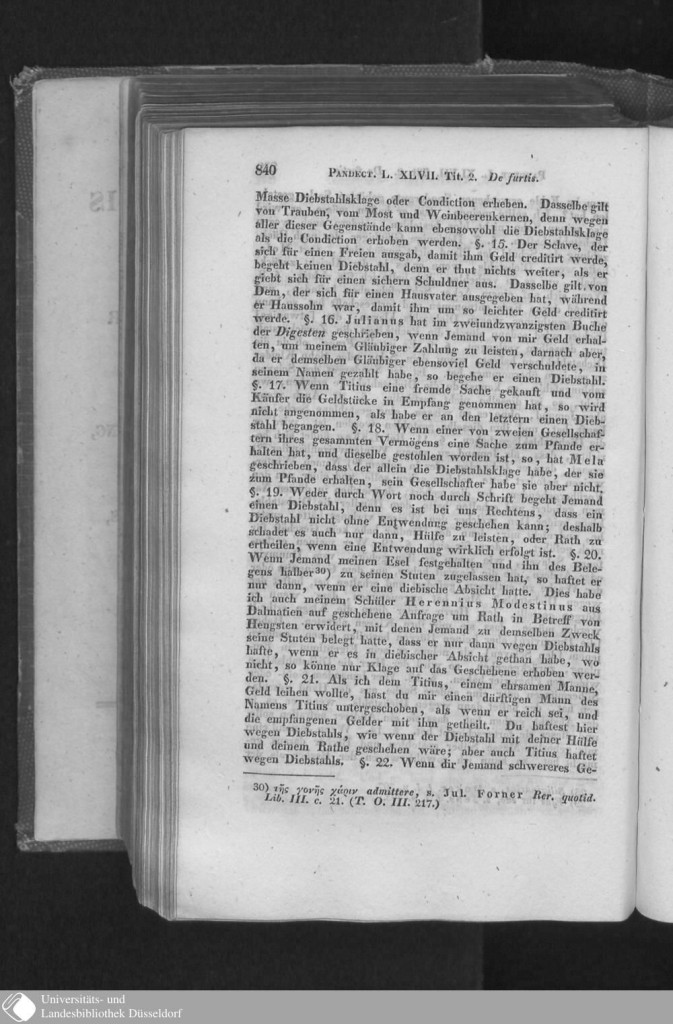 840 PANDECT. L. XLVII. Tit. 2. De furtis.
Masse Diebstahlsklage oder Condiction erheben. Dasselbe gilt
von Trauben, vom Most und Weinbeerenkernen, denn wegen
aller dieser Gegenstände kann ebensowohl die Diebstahlsklage
als die Condiction erhoben werden. §. 15. Der Sclave, der
sich für einen Freien ausgab, damit ihm Geld creditirt werde,
begeht keinen Diebstahl, denn er thut nichts weiter, als er
giebt sich für einen sichern Schuldner aus. Dasselbe gilt von
Dem, der sich für einen Hausvater ausgegeben hat, während
er Haussohn war, damit ihm um so leichter Geld creditirt
werde. §. 16. Julianus hat im zweiundzwanzigsten Buche
der Digesten geschrieben, wenn Jemand von mir Geld erhal-
ten, um meinem Gläubiger Zahlung zu leisten, darnach aber,
da er demselben Gläubiger ebensoviel Geld verschuldete, in
seinem Namen gezahlt habe, so begehe er einen Diebstahl.
§. 17. Wenn Titius eine fremde Sache gekauft und vom
Käufer die Geldstücke in Empfang genommen hat, so wird
nicht angenommen, als habe er an den letztern einen Dieb-
stahl begangen. §. 18. Wenn einer von zweien Gesellschaf-
tern ihres gesammten Vermögens eine Sache zum Pfande er-
halten hat, und dieselbe gestohlen worden ist, so hat Mela
geschrieben, dass der allein die Diebstahlsklage habe, der sie
zum Pfande erhalten, sein Gesellschafter habe sie aber nicht.
§. 19. Weder durch Wort noch durch Schrift begeht Jemand
einen Diebstahl, denn es ist bei uns Rechtens, dass ein
Diebstahl nicht ohne Entwendung geschehen kann; deshalb
schadet es auch nur dann, Hülfe zu leisten, oder Rath zu
ertheilen, wenn eine Entwendung wirklich erfolgt ist. §. 20.
Wenn Jemand meinen Esel festgehalten und ihn des Bele-
gens halber30) zu seinen Stuten zugelassen hat, so haftet er
nur dann, wenn er eine diebische Absicht hatte. Dies habe
ich auch meinem Schüler Herennius Modestinus aus
Dalmatien auf geschehene Anfrage um Rath in Betreff von
Hengsten erwidert, mit denen Jemand zu demselben Zweck
seine Stuten belegt hatte, dass er nur dann wegen Diebstahls
hafte, wenn er es in diebischer Absicht gethan habe, wo
nicht, so könne nur Klage auf das Geschehene erhoben wer-
den. §. 21. Als ich dem Titius, einem ehrsamen Manne,
Geld leihen wollte, hast du mir einen dürftigen Mann des
Namens Titius untergeschoben, als wenn er reich sei, und
die empfangenen Gelder mit ihm getheilt. Du haftest hier
wegen Diebstahls, wie wenn der Diebstahl mit deiner Hülfe
und deinem Rathe geschehen wäre; aber auch Titius haftet
wegen Diebstahls. §. 22. Wenn dir Jemand schwereres Ge-
30) τῆς γονῆς χάριν admittere, s. Jul. Forner Rer. quotid.
Lib. III. c. 21. (T. O. III. 217.)
Universitäts- und
Landesbibliothek Düsseldorf